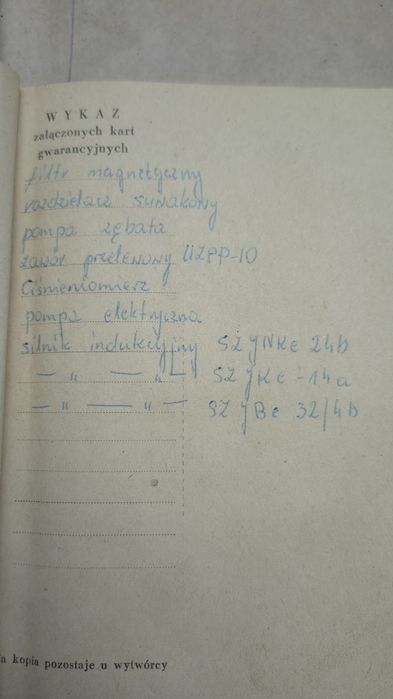 WYKAZ
załączonych kart
gwarancyjnych
filtr magnetyczny
rozdzielacz suwakowy
pompa zębata
zawór przelewowy UZPP-10
Ciśnieniomierz
pompa elektryczna
silnik indukcyjny SZJNKe 24b
— " — " — SZJKe -14a
— " — " — SZJBe 32/4b
a kopia pozostaje u wytwórcy